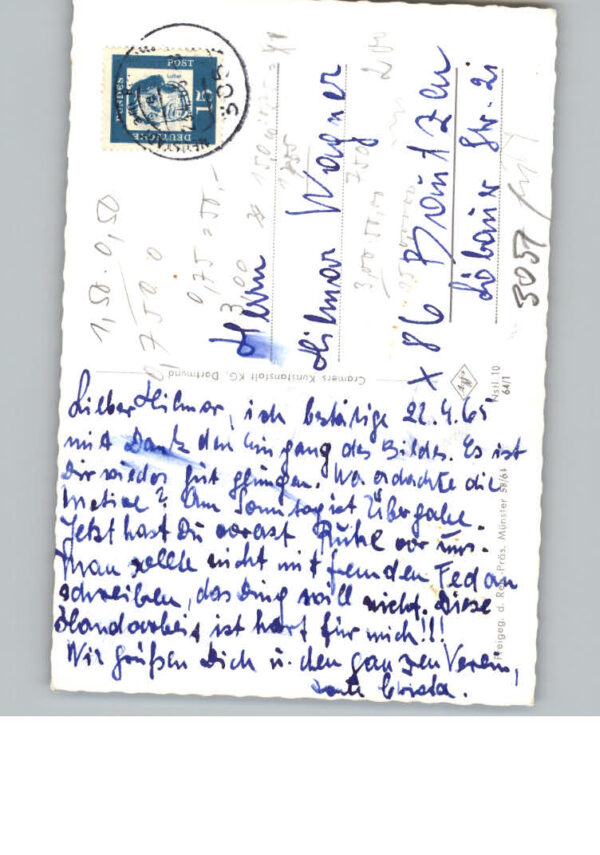 Lieber Hilmar, ich bestätige 22.4.65
mit Dank den Eingang des Bildes. Es ist
Dir wieder gut gelungen. Wer erdachte die
Motive? Am Sonntag ist Übergabe.
Jetzt hast Du vorerst Ruhe vor uns.
Man sollte nicht mit fremden Federn
schreiben, das Ding will nicht. Diese
Handarbeit ist hart für mich!!!
Wir grüßen Dich u. den ganzen Verein,
Christa.
Herrn
Hilmar Wagner
X 86 Bautzen
Löbauer Str. 21
5057
Cramers Kunstanstalt KG, Dortmund
Nstl 10
64/1
Freigeg. d. Reg.-Präs. Münster
DEUTSCHE
BUNDES
POST
Luther
15
305
1,50 · 0,50
0,75
3,00